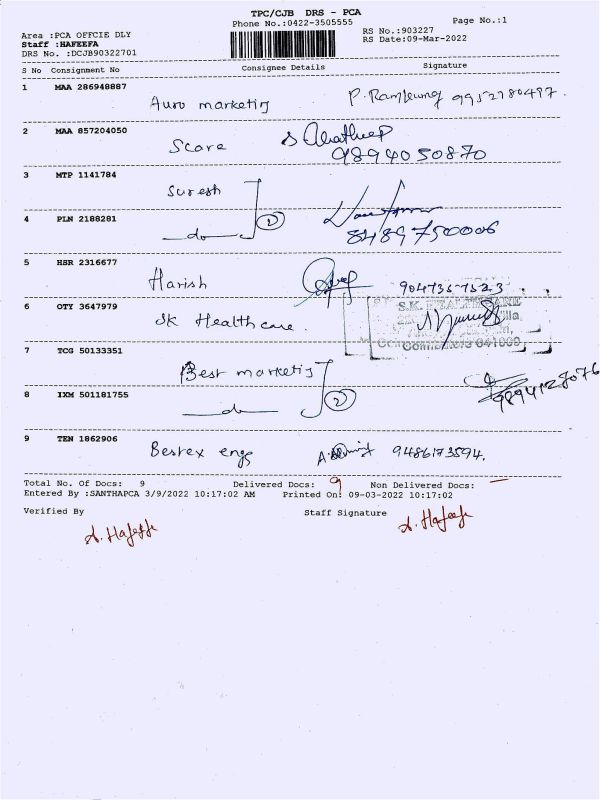 TPC/CJB DRS - PCA
Phone No.:0422-3505555
Page No.:1
Area :PCA OFFCIE DLY
RS No.:903227
Staff :HAFEEFA
RS Date:09-Mar-2022
DRS No. :DCJB90322701
S No Consignment No Consignee Details Signature
1 MAA 286948887 Auro marketing 9952780497.
2 MAA 857204050 Score
9894050870
3 MTP 1141784 Suresh
4 PLN 2188281 do 2 8489750006
5 HSR 2316677 Harish 9047357523
6 OTY 3647979 SK Healthcare. S.K. HEALTHCARE
Coimbatore 641009
7 TCG 50133351 Best marketing
8 IXM 501181755 do 2 9894128076
9 TEN 1862906 Bestex engg 9486173594.
Total No. Of Docs: 9 Delivered Docs: 9 Non Delivered Docs: —
Entered By :SANTHAPCA 3/9/2022 10:17:02 AM Printed On: 09-03-2022 10:17:02
Verified By Staff Signature
A. Hafeefa A. Hafeefa